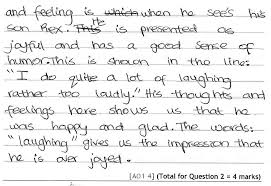 and feeling is which when he see's his
son Rex. This He is presented as
joyful and has a good sense of
humor. This is shown in the line:
"I do quite a lot of laughing
rather too loudly." His thoughts and
feelings here shows us that he
was happy and glad. The words:
"laughing" gives us the impression that
he is over joyed.
[AO1 4] (Total for Question 2 = 4 marks)